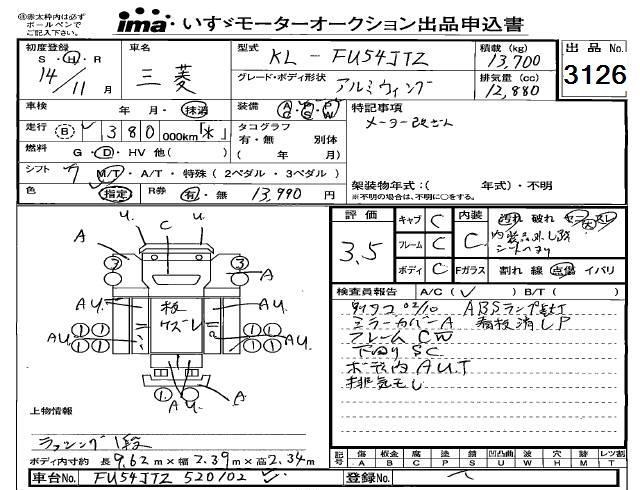 ㊟赤太枠内は必ず
ボールペンで
ご記入下さい。
ima いすゞモーターオークション出品申込書
初度登録
S・H・R
14年
11月
車名
三菱
型式
KL-FU54JTZ
グレード・ボディ形状
アルミウィング
積載 (kg)
13,700
排気量 (cc)
12,880
出品No.
3126
車検 年・月・抹消
装備 A/C・P/S・P/W
特記事項
メーター改ざん
走行 B 380 000km「*」
タコグラフ
有・無 別体
( 年 月)
燃料 G・D・HV 他( )
シフト 7 M/T・A/T・特殊 ( 2ペダル・3ペダル )
架装物年式:( 年式)・不明
※不明の場合は、不明に○をする。
色 指定 R券 有・無 13,990 円
評価
3.5
キャブ C
フレーム C
ボディ C
内装
C
Fガラス
汚れ 破れ コゲ 穴 スレ
内装品外し跡
シートヘタリ
割れ 線 点傷 イバリ
検査員報告 A/C( ✓ ) B/T( )
02/10 ABSランプ点灯
ミラーカバーA 看板消しP
フレーム CW
下回り SC
ボディ内 AUT
排気モレ
U. U.
A C A
3 3
AU. 板 AU.
AU. AU.
1 1 1 1
1 1 1 1
1
AU.
A
上物情報
ラッシング1段
ボディ内寸約 長9.62m×幅2.39m×高2.34m
記号 傷 A 板金 B 腐 C 塗 P 錆 S 凹凸曲 U 波 W 穴 H 跡 M レツ割 T
車台No. FU54JTZ 520102 ✓
登録No.